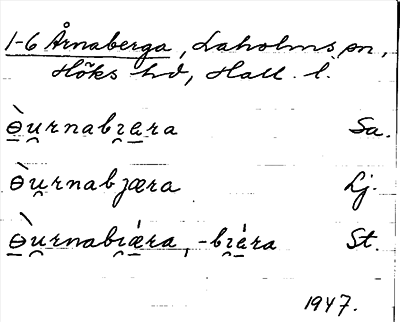 1-6 Årnaberga, Laholms sn,
Höks hd, Hall. l.
ɵ̀u̯rnabɪ̯æra Sa.
ɵ̀u̯rnabjæra Lj.
ɵ̀u̯rnabɪ̯ǽra, -bɪ̯ǽra St.
1947.